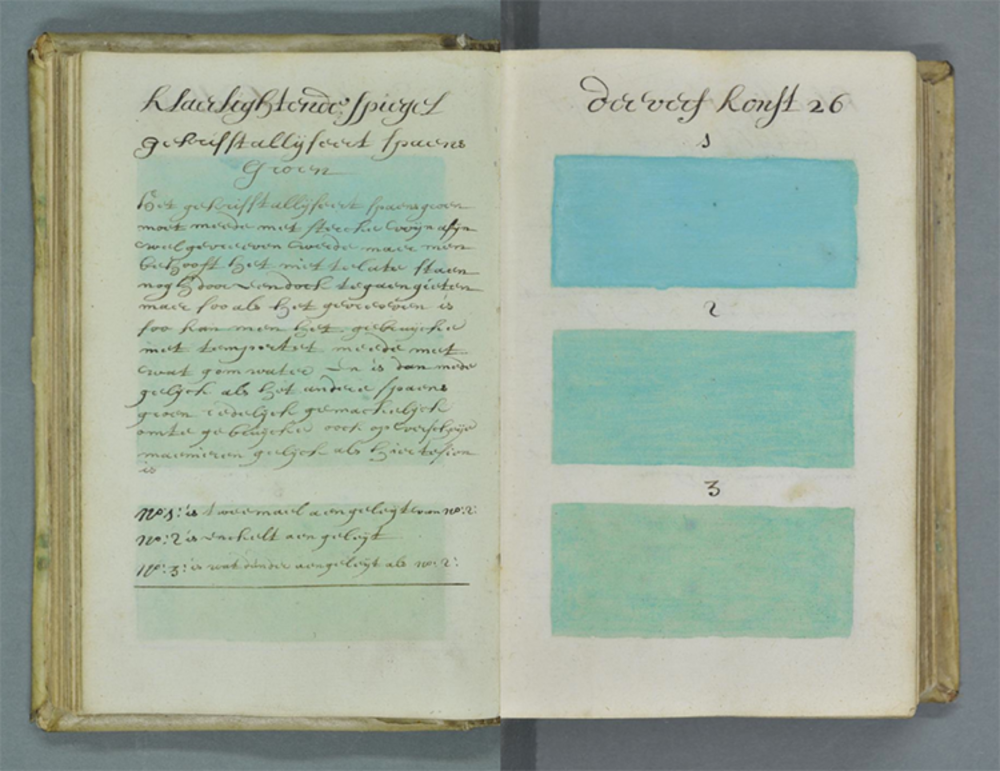 klaerlightende spiegel
gekrisstallyseert spaens
Groen
Het gekrisstallyseert spaensgroen
moet meede met stercke wyn asyn
wel gevreeven werde maer men
behooft het niet te late staen
nogh door een doek te gaen gieten
maer soo als het gevreeven is
soo kan men het gebruijcke
met tempertet meede met
wat gom water En is dan mede
gelyck als het andere spaens
groen redelyck gemackelyck
omte gebruijcke oock op verscheyde
manieren gelyck als hier te sien
is
No: 1: is tweemael aengeleyt van no: 2:
no: 2 is enckelt aengeleyt
No: 3: is wat dunder aengeleyt als no: 2:
der verf konst 26
1
2
3